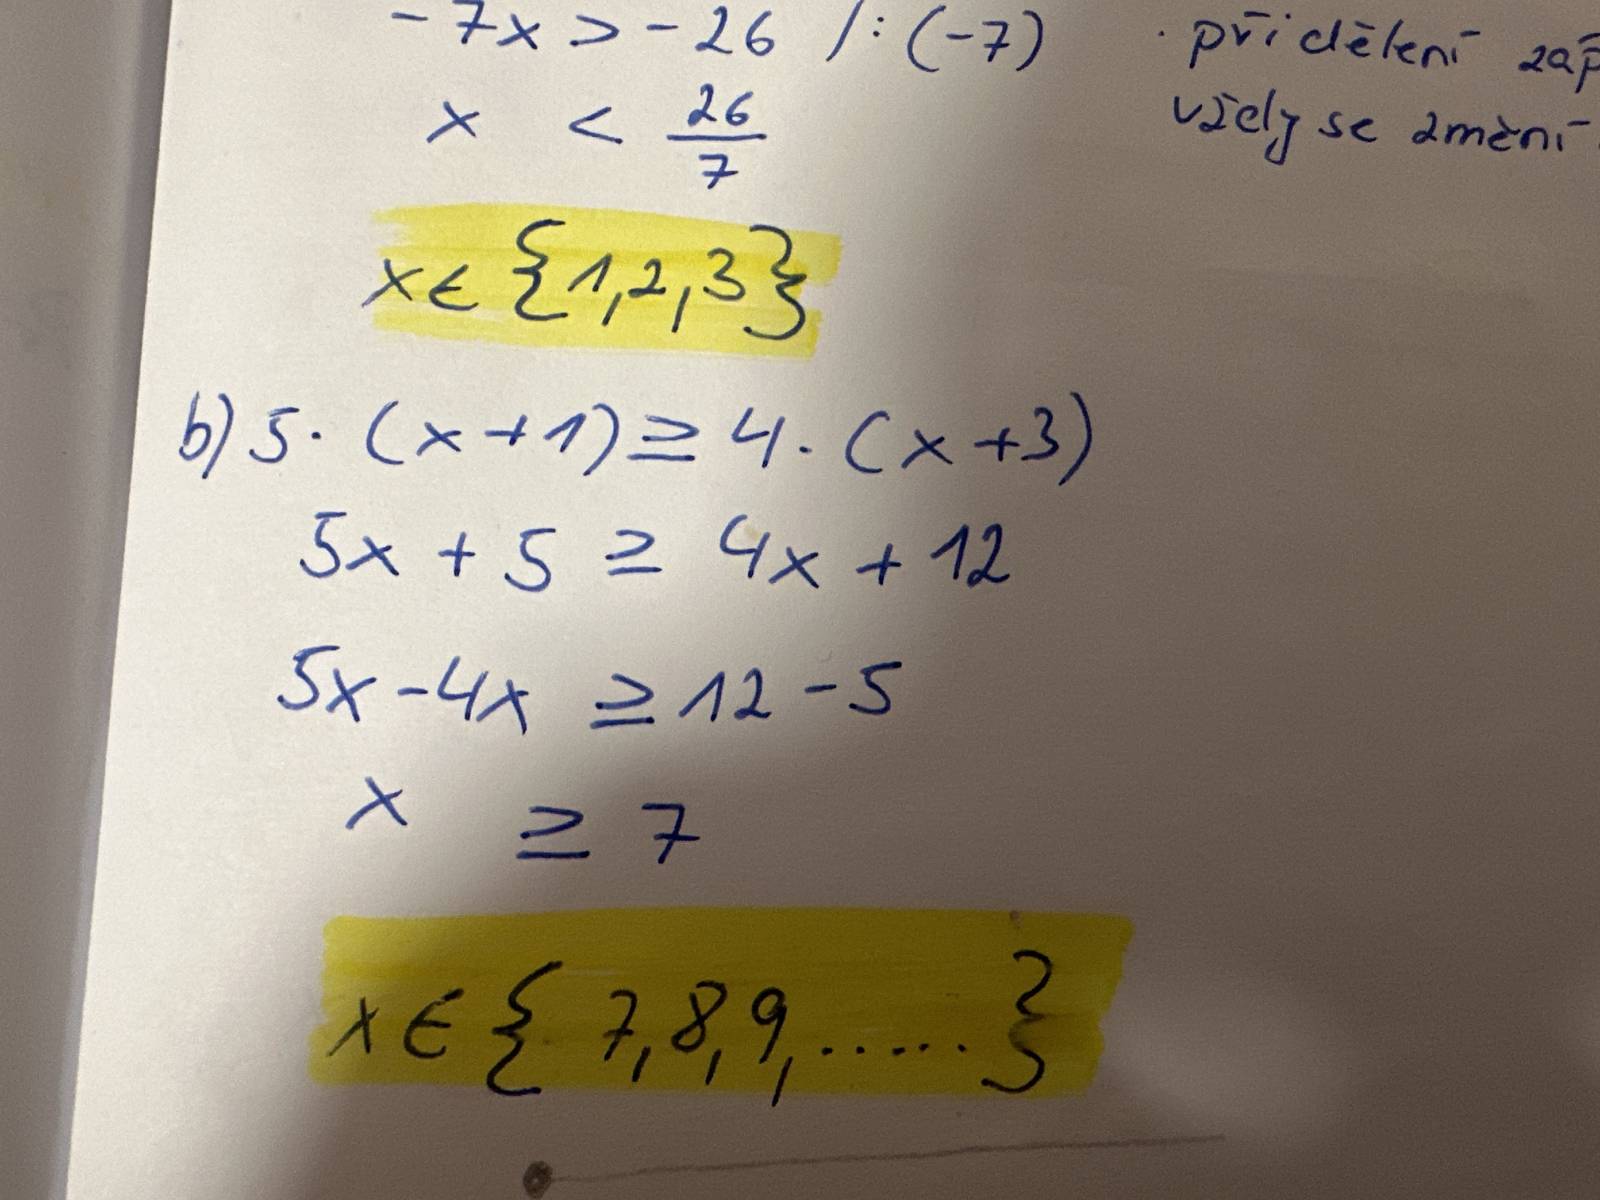 -7x > -26 /: (-7) · při dělení zap
vždy se změní
x < 26/7
x∈{1,2,3}
b) 5·(x+1) ≥ 4·(x+3)
5x + 5 ≥ 4x + 12
5x - 4x ≥ 12 - 5
x ≥ 7
x∈{7,8,9,.....}